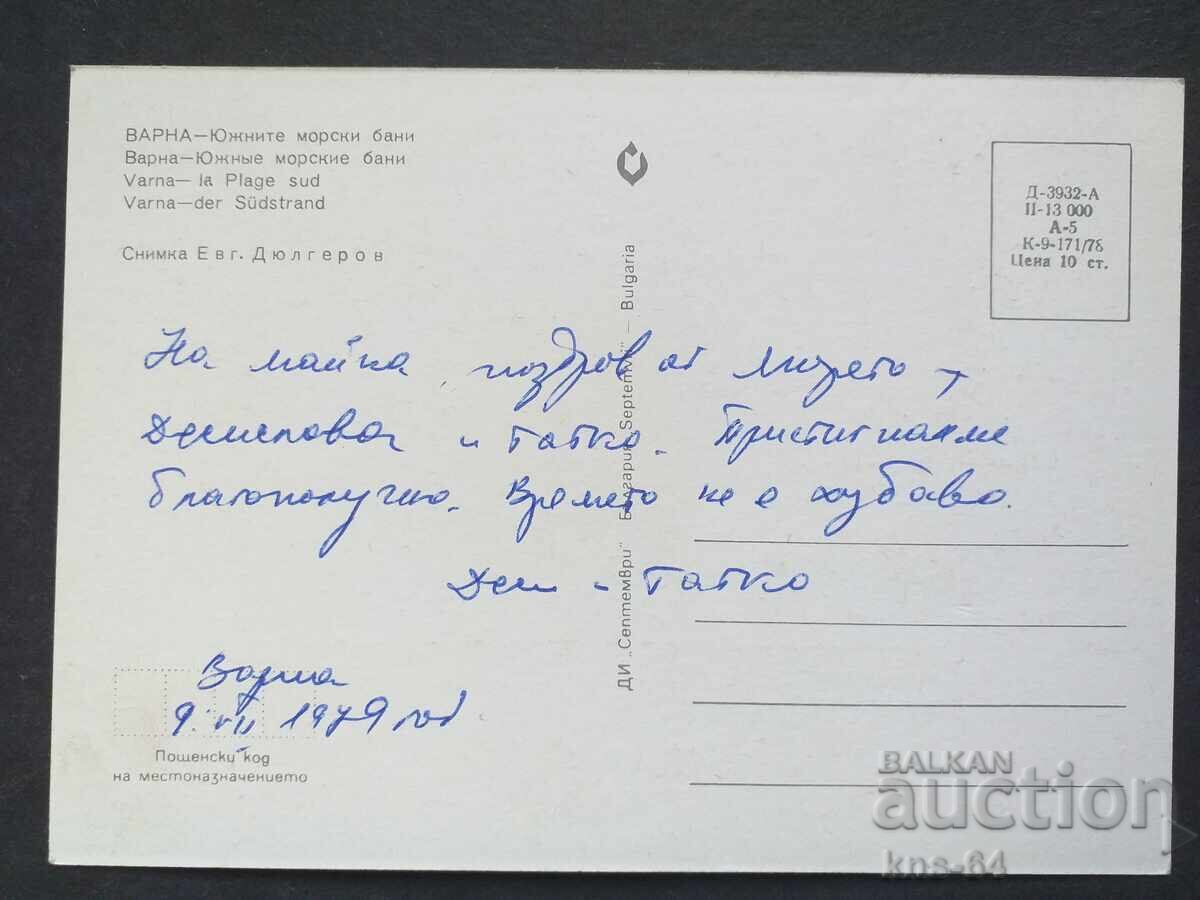 ВАРНА—Южните морски бани
Варна—Южные морские бани
Varna—la Plage sud
Varna—der Südstrand
Снимка Евг. Дюлгеров
Д-3932-А
II-13 000
А-5
К-9-171/78
Цена 10 ст.
На майка, поздрав от морето
Десислава и татко. Пристигнахме
благополучно. Времето не е хубаво.
Деси и татко
Варна
9. VII 1979 год
Пощенски код
на местоназначението
ДИ „Септември" България „Septemvri" — Bulgaria
BALKAN
auction
kns-64